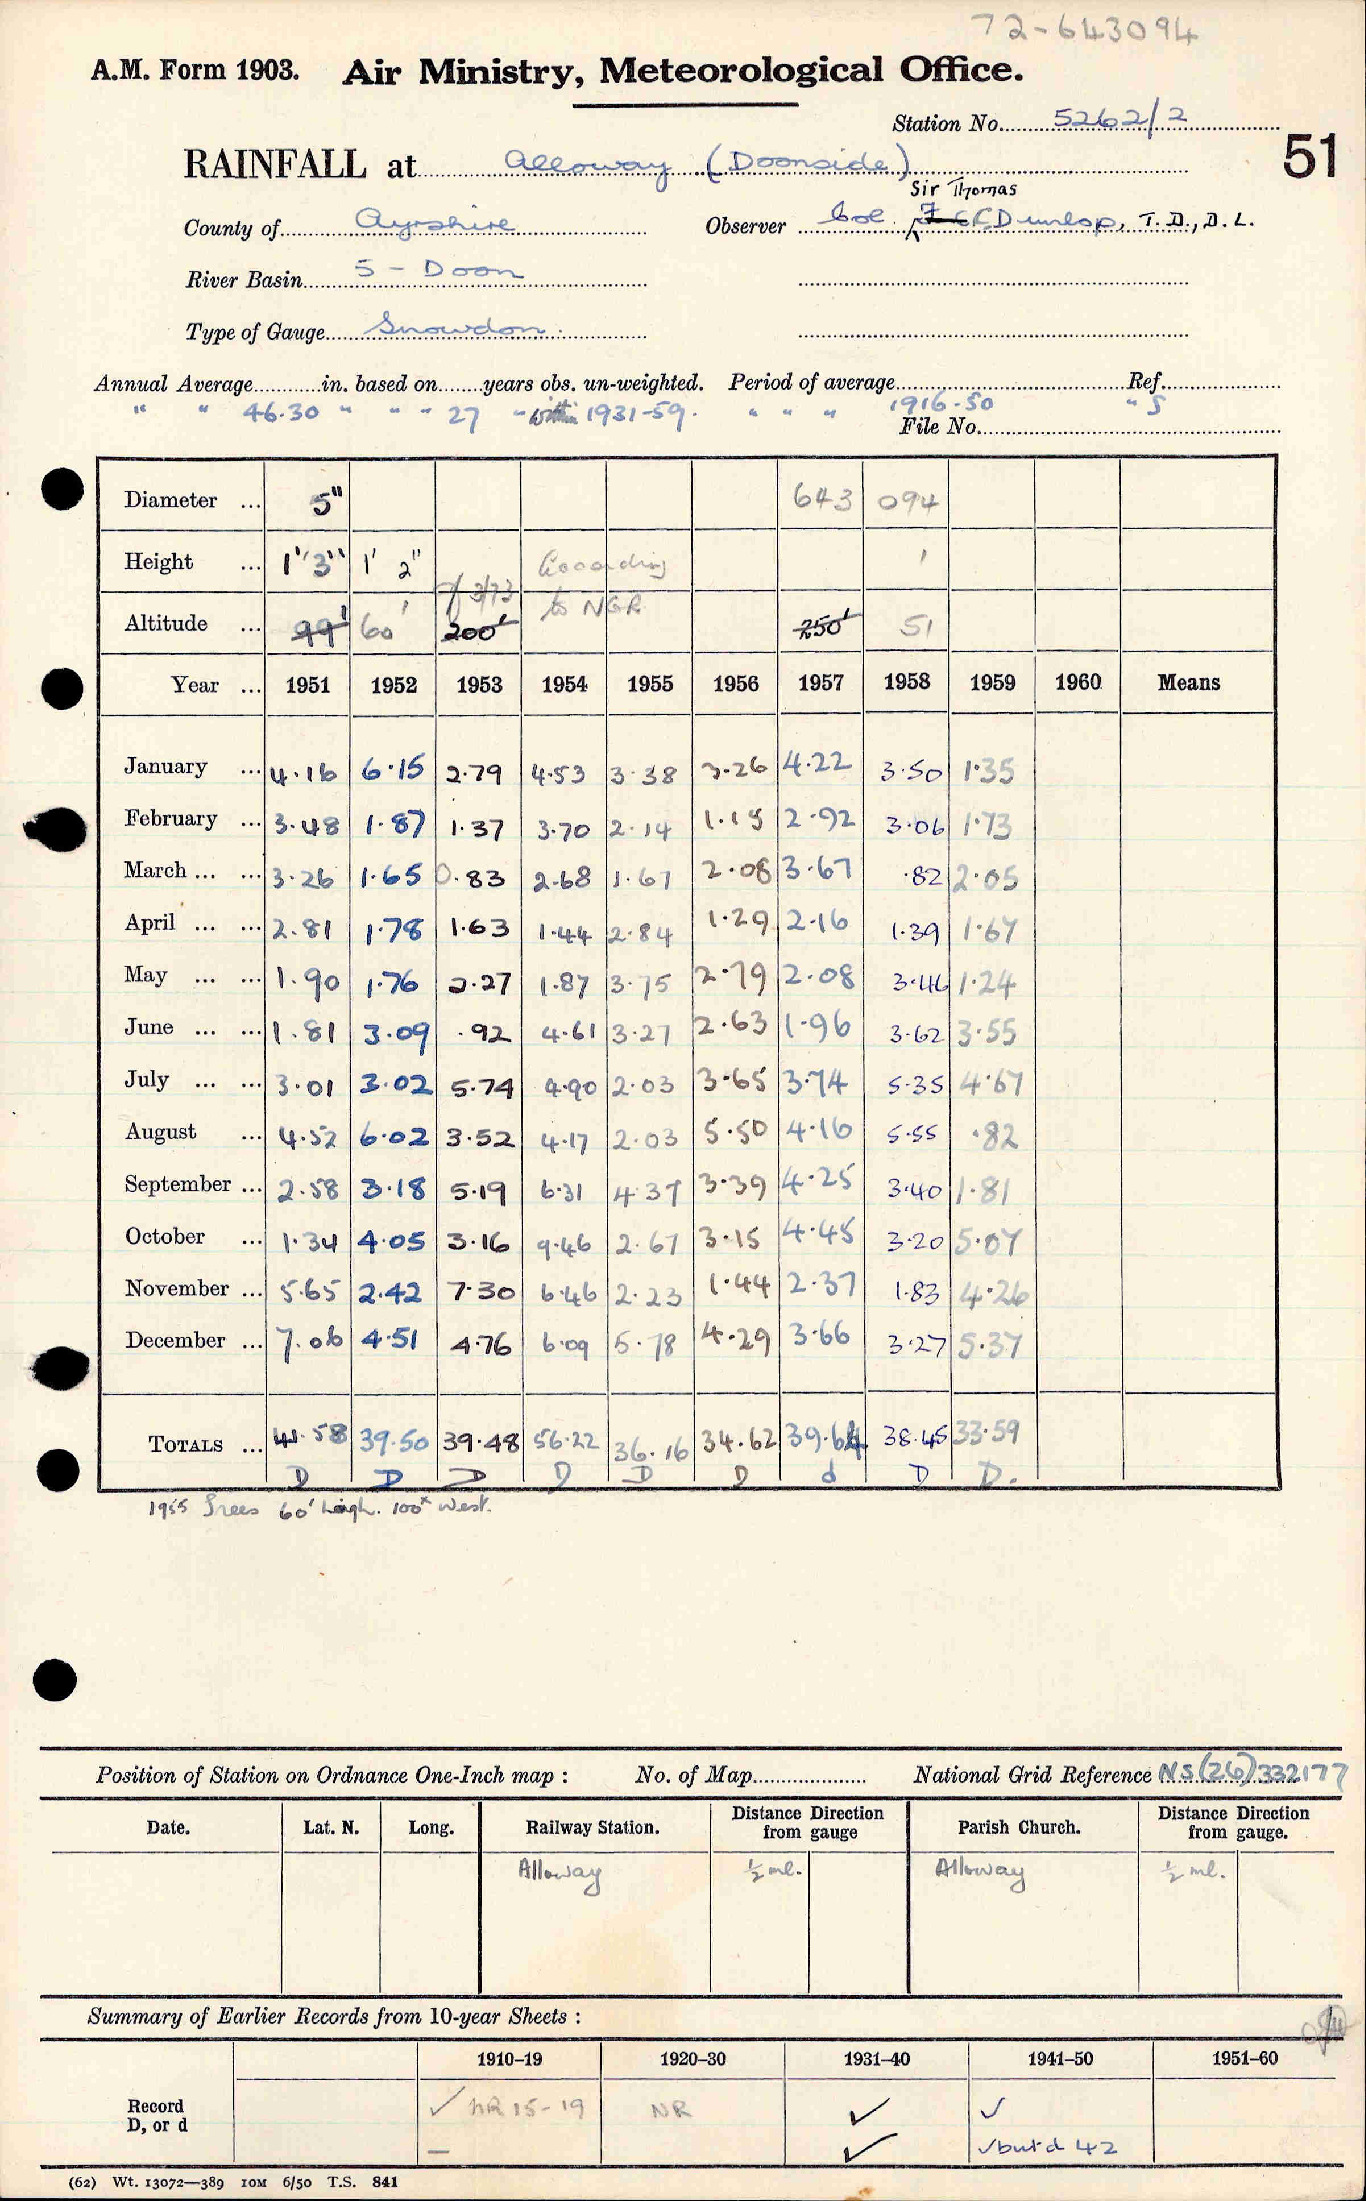 72-643094
A.M. Form 1903. Air Ministry, Meteorological Office.
Station No. 5262/2
51
RAINFALL at Alloway (Doonside)
Sir Thomas
County of Ayrshire Observer Col. Dunlop, T.D., D.L.
River Basin 5 - Doon
Type of Gauge Snowdon.
Annual Average in. based on years obs. un-weighted. Period of average Ref.
" " 46.30 " " " 27 " within 1931-59. " " " 1916-50 " S
File No.
Diameter ... 5" 643 094
Height ... 1' 3" 1' 2" According '
3/73 to NGR
Altitude ... 99' 60' 200' 250' 51
Year ... 1951 1952 1953 1954 1955 1956 1957 1958 1959 1960 Means
January ... 4.16 6.15 2.79 4.53 3.38 3.26 4.22 3.50 1.35
February ... 3.48 1.87 1.37 3.70 2.14 1.15 2.92 3.06 1.73
March ... ... 3.26 1.65 0.83 2.68 1.67 2.08 3.67 .82 2.05
April ... ... 2.81 1.78 1.63 1.44 2.84 1.29 2.16 1.39 1.67
May ... ... 1.90 1.76 2.27 1.87 3.75 2.79 2.08 3.46 1.24
June ... ... 1.81 3.09 .92 4.61 3.27 2.63 1.96 3.62 3.55
July ... ... 3.01 3.02 5.74 4.90 2.03 3.65 3.74 5.35 4.67
August ... 4.52 6.02 3.52 4.17 2.03 5.50 4.16 5.55 .82
September ... 2.58 3.18 5.19 6.31 4.37 3.39 4.25 3.40 1.81
October ... 1.34 4.05 3.16 9.46 2.67 3.15 4.45 3.20 5.07
November ... 5.65 2.42 7.30 6.46 2.23 1.44 2.37 1.83 4.26
December ... 7.06 4.51 4.76 6.09 5.78 4.29 3.66 3.27 5.37
TOTALS ... 41.58 39.50 39.48 56.22 36.16 34.62 39.64 38.45 33.59
D D D D D D d D D.
1955 Trees 60' high. 100x West.
Position of Station on Ordnance One-Inch map : No. of Map National Grid Reference NS(26)332177
Date. Lat. N. Long. Railway Station. Distance Direction from gauge Parish Church. Distance Direction from gauge.
Alloway ½ ml. Alloway ½ ml.
Summary of Earlier Records from 10-year Sheets :
1910–19 1920–30 1931–40 1941–50 1951–60
Record D, or d ✓ NR 15-19 NR ✓ ✓
— ✓ ✓ but d 42
(62) Wt. 13072—389 10M 6/50 T.S. 841